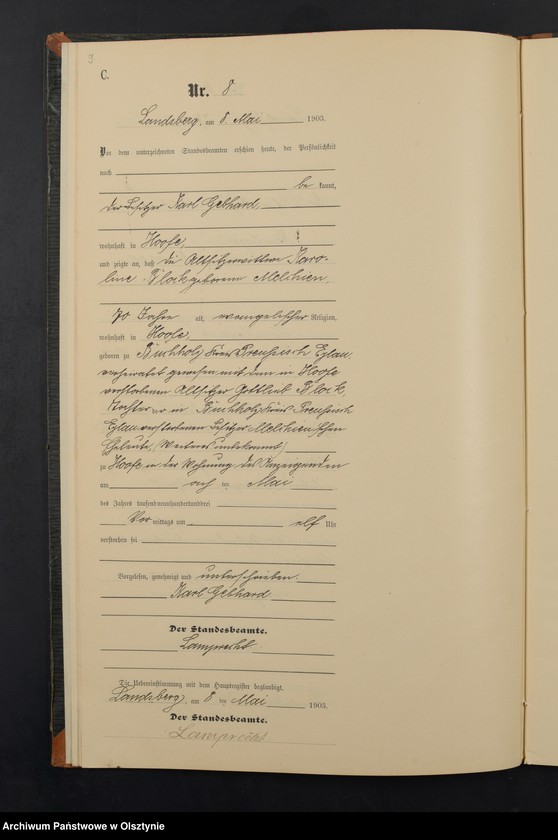 9
C.
Nr. 8
Landsberg, am 8. Mai 1903.
Vor dem unterzeichneten Standesbeamten erschien heute, der Persönlichkeit
nach
be kannt,
der Besitzer Karl Gebhard
wohnhaft in Hoofe,
und zeigte an, daß die Altsitzerwittwe Karo-
line Block geborene Melchien,
70 Jahre alt, evangelischer Religion,
wohnhaft in Hoofe,
geboren zu Buchholz Kreis Preußisch Eylau,
verheiratet gewesen mit dem in Hoofe
verstorbenen Altsitzer Gottlieb Block,
Tochter der in Buchholz Kreis Preußisch
Eylau verstorbenen Besitzer Melchien'schen
Eheleute, (Weiteres unbekannt)
zu Hoofe in der Wohnung des Anzeigenden
am ten Mai
des Jahres tausendneunhundertunddrei
Vor mittags um elf Uhr
verstorben sei
Vorgelesen, genehmigt und unterschrieben.
Karl Gebhard
Der Standesbeamte.
Lamprecht
Die Uebereinstimmung mit dem Hauptregister beglaubigt.
Landsberg, am 8. ten Mai 1903.
Der Standesbeamte.
Lamprecht
Archiwum Państwowe w Olsztynie